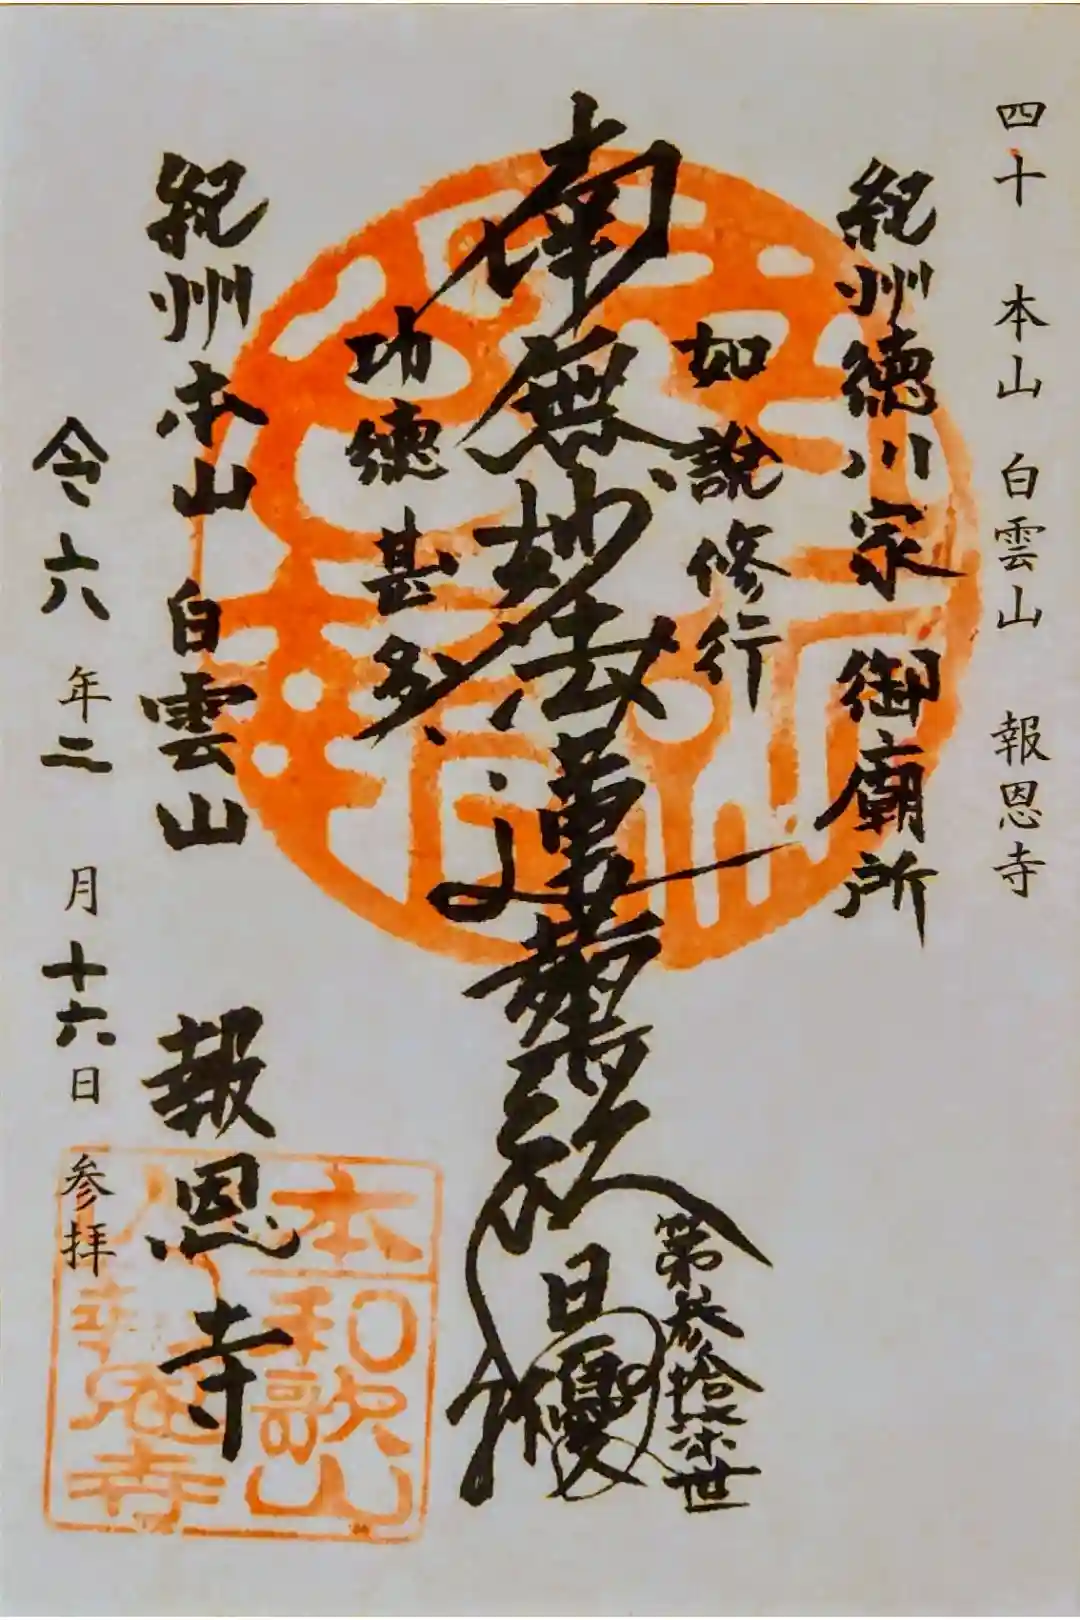 四十 本山 白雲山 報恩寺
紀州徳川家 御廟所
如說修行
南無妙法蓮華経
日優
第参拾柒世
功徳甚多
紀州本山 白雲山 報恩寺
令六年二月十六日 参拝
本和歌山
報恩寺